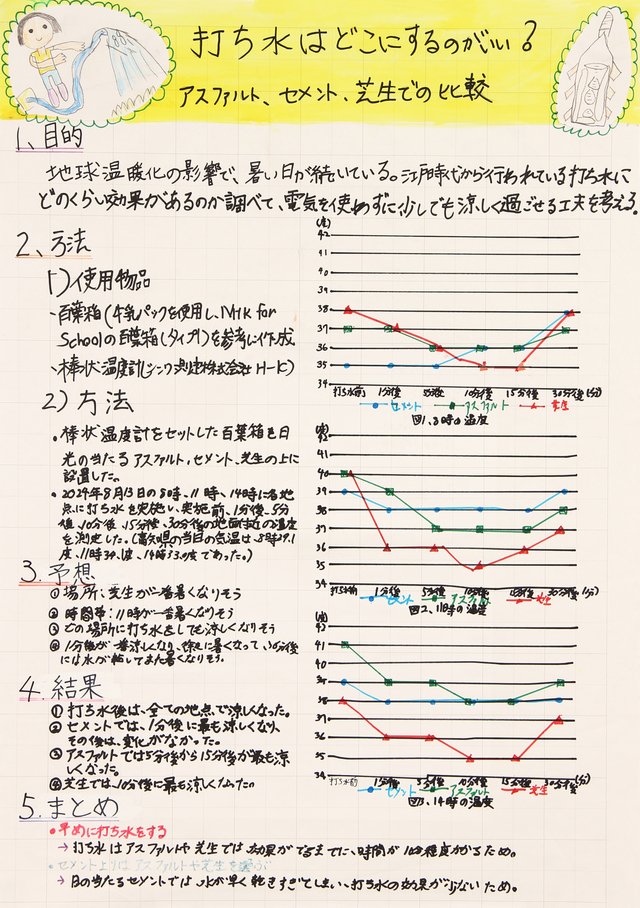 打ち水はどこにするのがいい?
アスファルト、セメント、芝生での比較
1、目的
地球温暖化の影響で、暑い日が続いている。江戸時代から行われている打ち水に
どのくらい効果があるのか調べて、電気を使わずに少しでも涼しく過ごせる工夫を考える。
2、方法
1)使用物品
・百葉箱(牛乳パックを使用し、NHK for
Schoolの百葉箱(タイプ1)を参考に作成
・棒状温度計(シンワ測定株式会社 H-)
2)方法
・棒状温度計をセットした百葉箱を日
光の当たるアスファルト、セメント、芝生の上に
設置した。
・2024年8月13日の8時、11時、14時に各地
点に打ち水を実施し、実施前、1分後、5分
後、10分後、15分後、30分後の地面付近の温度
を測定した。(高知県の当日の気温は、8時29.1
度、11時30.度、14時33.0度であった。)
3.予想
①場所:芝生が一番暑くなりそう
②時間帯:11時が一番暑くなりそう
③どの場所に打ち水をしても涼しくなりそう
④1分後が一番涼しくなり、徐々に暑くなって、30分後
には水が乾いてまた暑くなりそう。
4.結果
①打ち水後は、全ての地点で涼しくなった。
②セメントでは、1分後に最も涼しくなり、
その後は、変化がなかった。
③アスファルトでは5分後から15分後が最も涼
しくなった。
④芝生では、10分後に最も涼しくなった。
5.まとめ
・早めに打ち水をする
→打ち水はアスファルトや芝生では効果がでるまでに、時間が10分程度かかるため。
・セメントよりはアスファルトや芝生を選ぶ
→日の当たるセメントでは水が早く乾きすぎてしまい、打ち水の効果が少ないため。
(度)
42
41
40
39
38
37
36
35
34
打ち水前 1分後 5分後 10分後 15分後 30分後 (分)
セメント アスファルト 芝生
図1、8時の温度
42
41
40
39
38
37
36
35
34
打ち水前 1分後 5分後 10分後 15分後 30分後 (分)
セメント アスファルト 芝生
図2、11時の温度
(度)
42
41
40
39
38
37
36
35
34
打ち水前 1分後 5分後 10分後 15分後 30分後 (分)
セメント アスファルト 芝生
図3、14時の温度